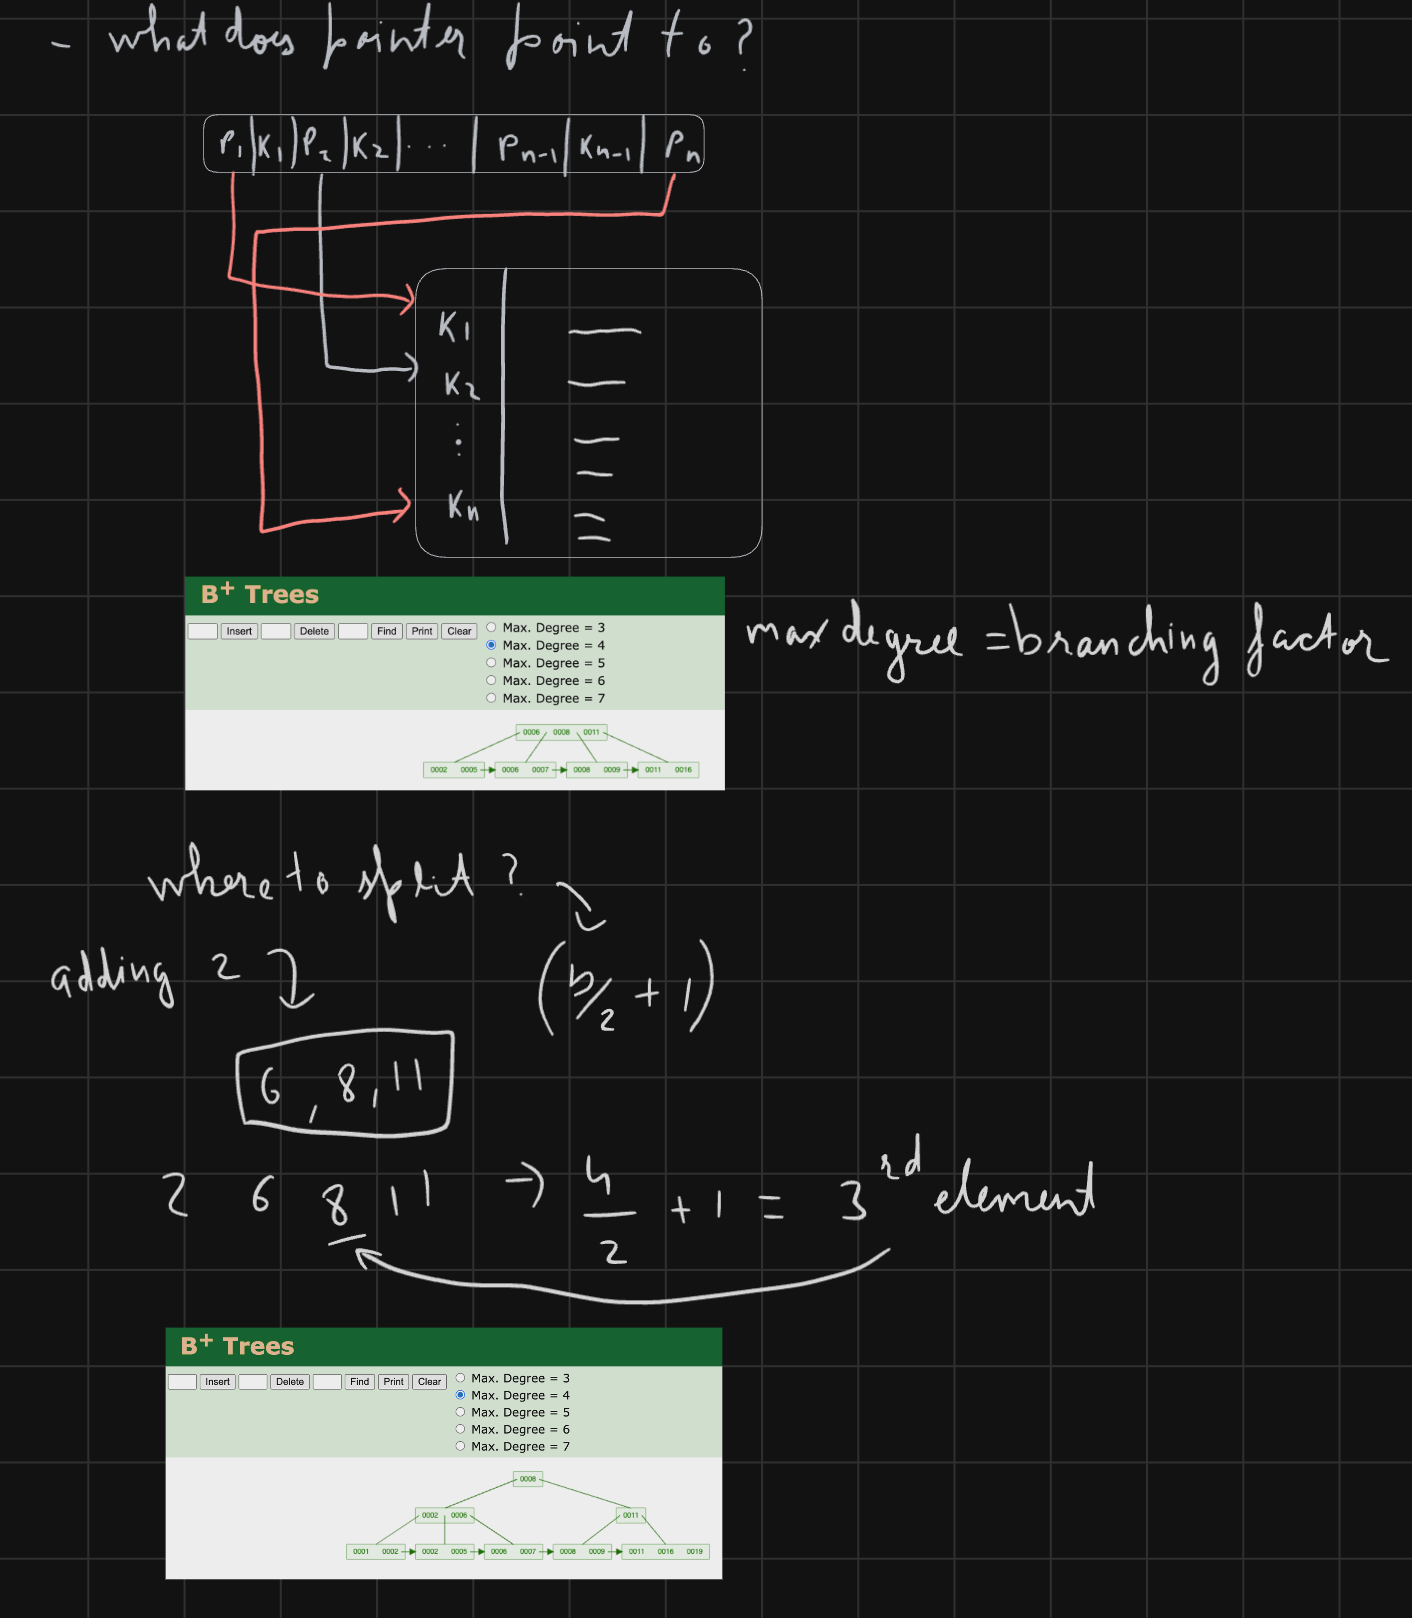 - what does pointer point to?
P1 | K1 | P2 | K2 | ... | Pn-1 | Kn-1 | Pn
K1
K2
⋮
Kn
B+ Trees
Insert Delete Find Print Clear
Max. Degree = 3
Max. Degree = 4
Max. Degree = 5
Max. Degree = 6
Max. Degree = 7
max degree = branching factor
0006 0008 0011
0002 0005 0006 0007 0008 0009 0011 0016
where to split ?
(b/2 + 1)
adding 2
6, 8, 11
2 6 8 11 → 4/2 + 1 = 3rd element
B+ Trees
Insert Delete Find Print Clear
Max. Degree = 3
Max. Degree = 4
Max. Degree = 5
Max. Degree = 6
Max. Degree = 7
0008
0002 0006 0011
0001 0002 0002 0005 0006 0007 0008 0009 0011 0016 0019